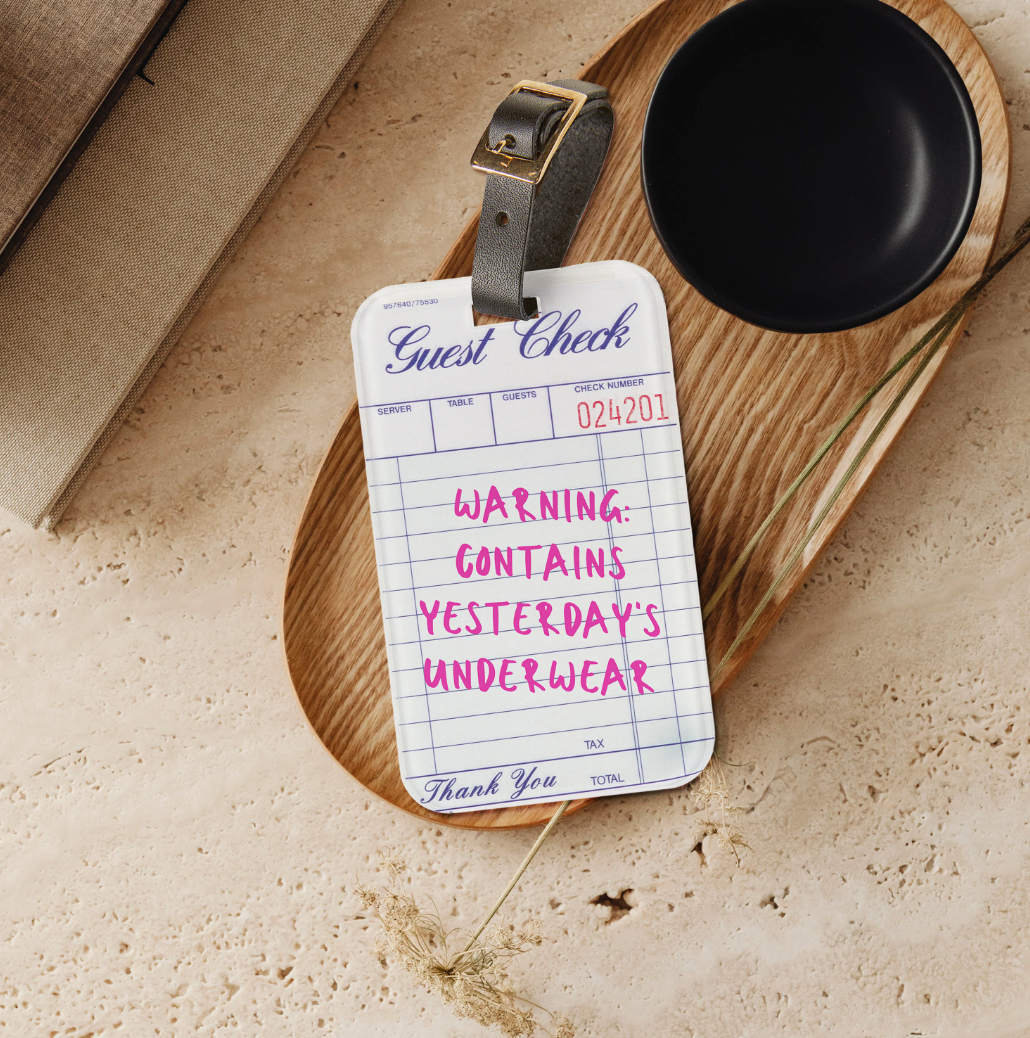 957640/75530
Guest Check
SERVER TABLE GUESTS CHECK NUMBER
024201
WARNING:
CONTAINS
YESTERDAY'S
UNDERWEAR
TAX
Thank You TOTAL